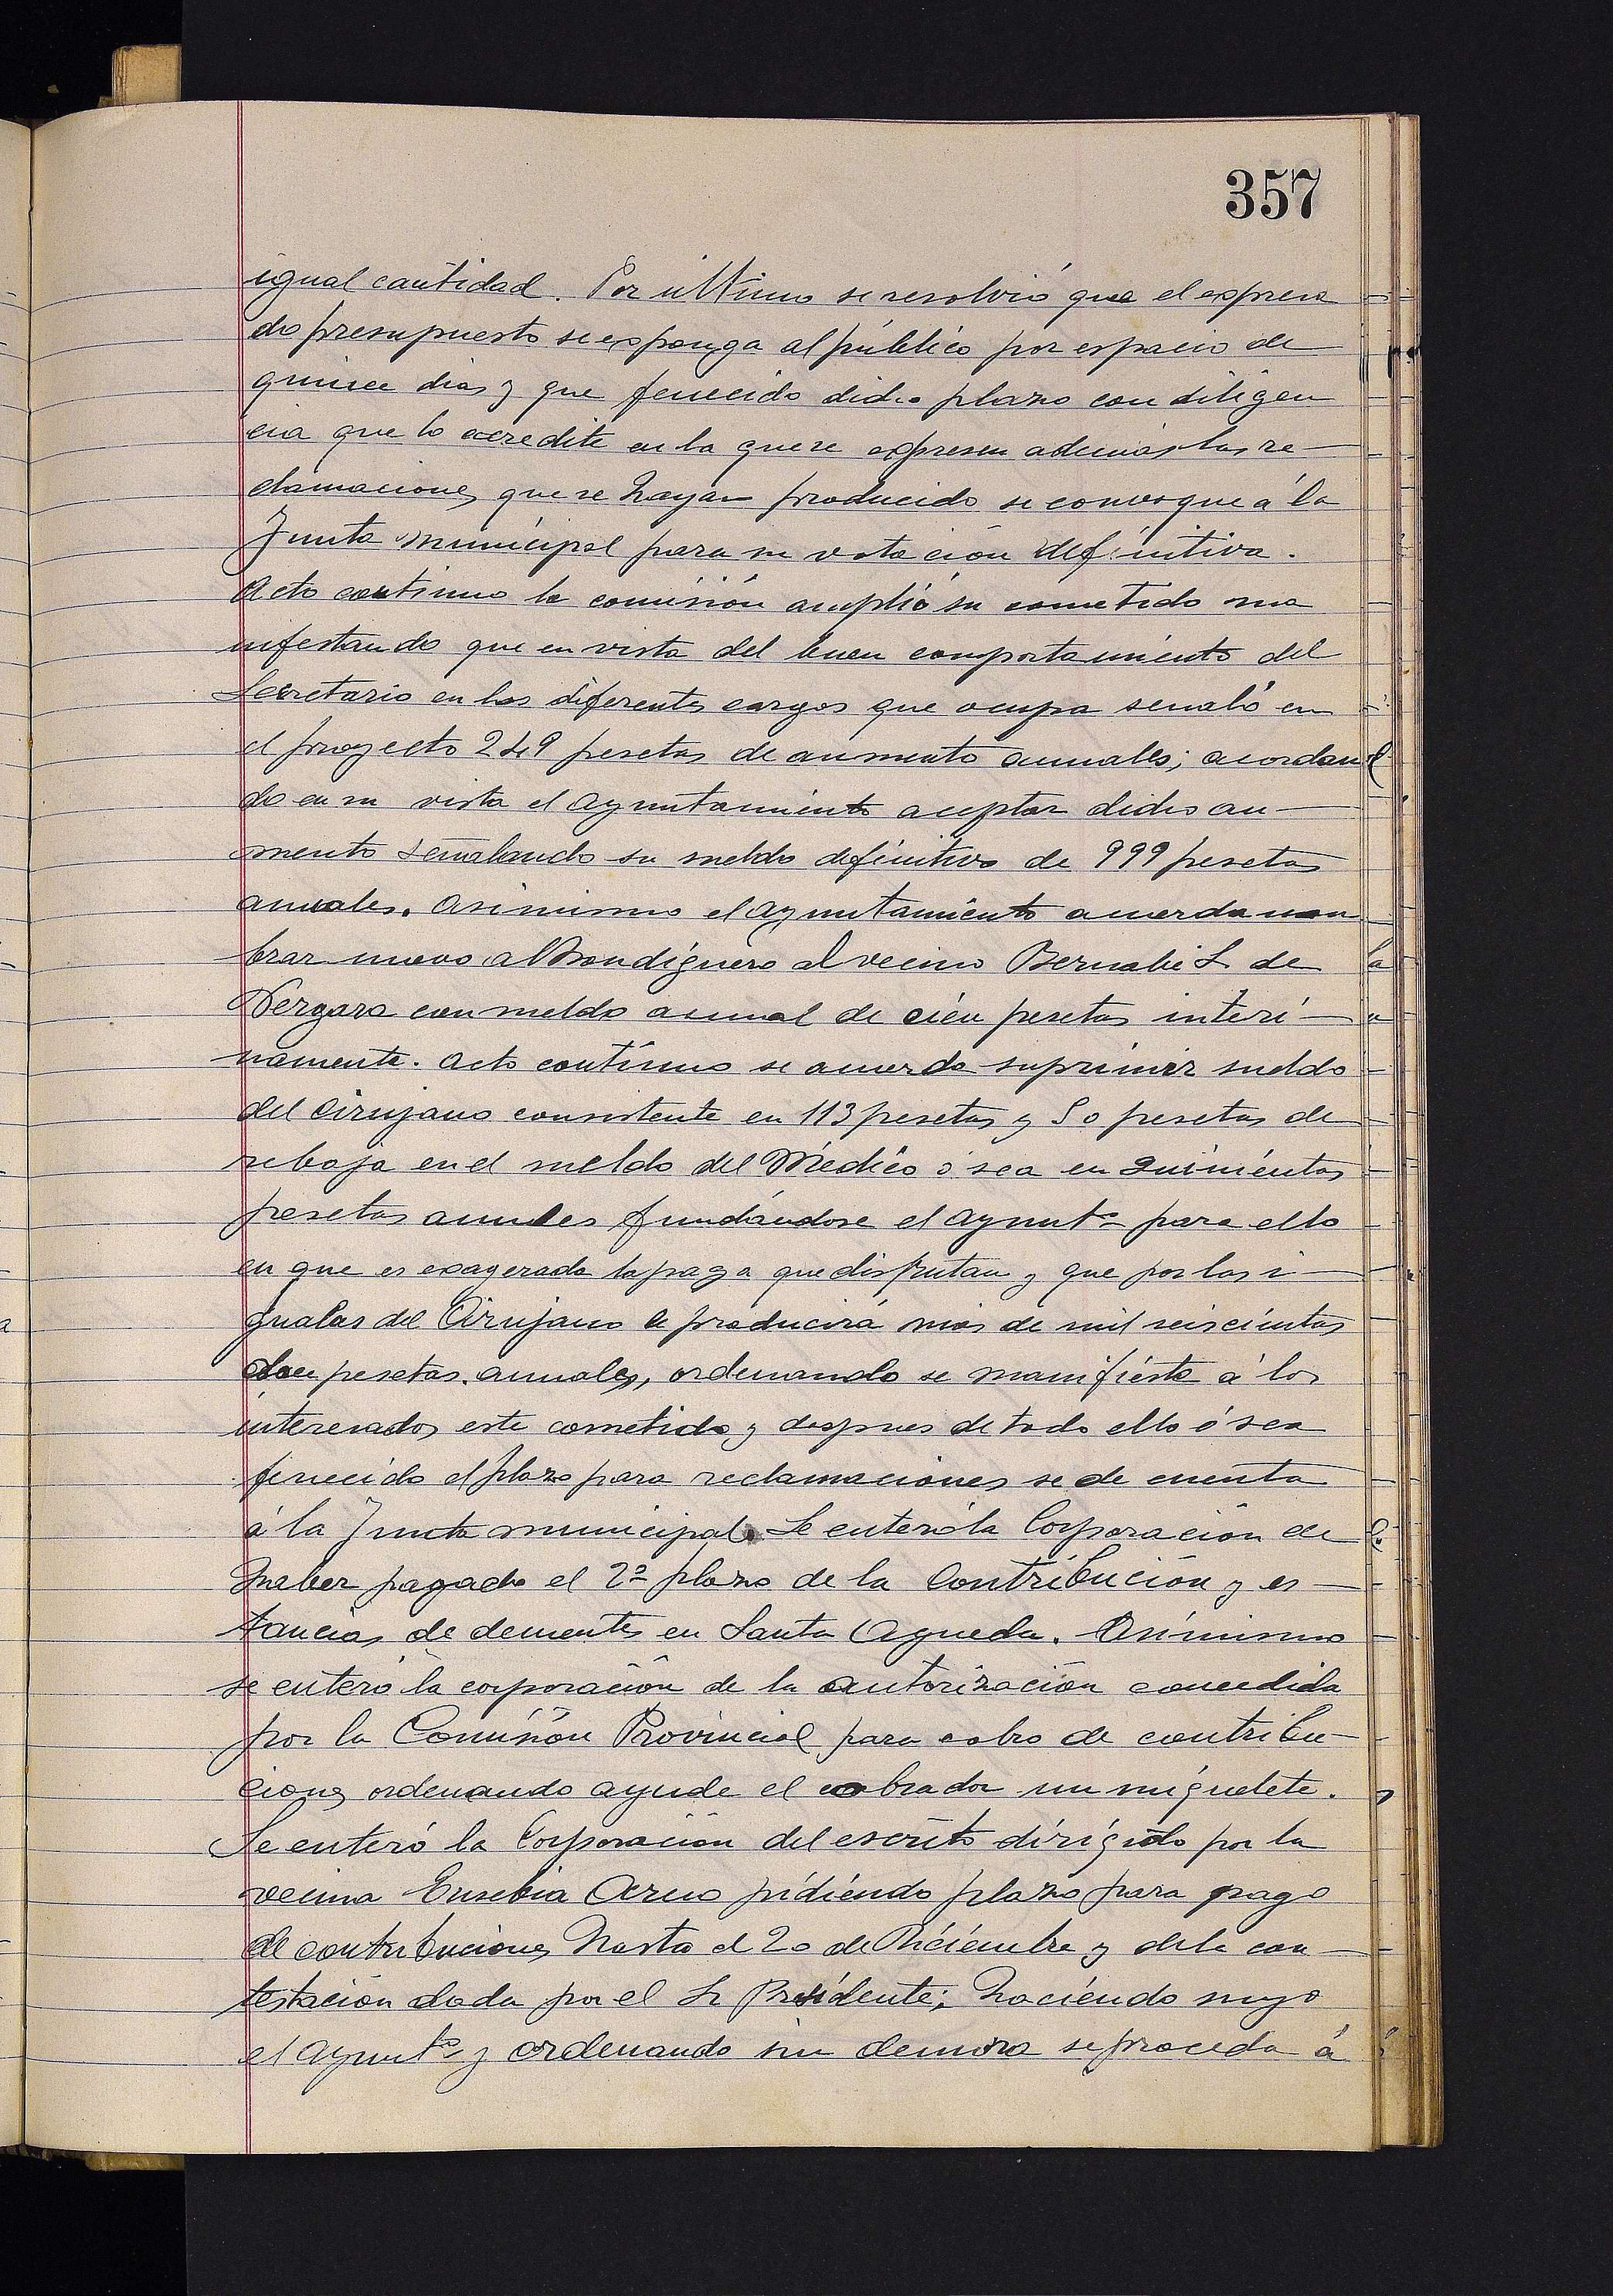 357
igual cantidad. Por último se resolvió que el expresa
do presupuesto se exponga al público por espacio de
quince dias y que fenecido dicho plazo con diligen
cia que lo acredite en la que se expresen además las re-
clamaciones que se hayan producido se convoque á la
Junta municipal para su votación definitiva.
Acto continuo la comisión amplió su cometido ma
nifestando que en vista del buen comportamiento del
Secretario en los diferentes cargos que ocupa señaló en
el proyecto 249 pesetas de aumento anuales; acordan
do en su vista el Ayuntamiento aceptar dicho au-
mento señalando su sueldo definitivo de 999 pesetas
anuales. Asimismo el Ayuntamiento acuerda nom
brar nuevo alhondiguero al vecino Bernabé L. de
Vergara con sueldo anual de cien pesetas interi-
namente. Acto contínuo se acuerda suprimir sueldo
del Cirujano consistente en 113 pesetas y 50 pesetas de
rebaja en el sueldo del Médico ó sea en quinientas
pesetas anuales fundándose el Aynutº para ello
en que es exagerada la paga que disfrutan y que por las i-
gualas del Cirujano le producirá más de mil seiscientas
doce pesetas anuales, ordenando se manifieste á los
interesados este cometido y despues de todo ello ó sea
fenecido el plazo para reclamaciones se de cuenta
á la Junta municipal. Se enteró la Corporación de
haber pagado el 2º plazo de la Contribución y es-
tancias de dementes en Santa Agueda. Asimismo
se enteró la corporación de la autorización concedida
por la Comisión Provincial para cobro de contribu-
ciones ordenando ayude el cobrador un miguelete.
Se enteró la Corporación del escrito dirigido por la
vecina Eusebia pidiendo plazo para pago
de contribuciones hasta el 20 de Diciembre y de la con-
testación dada por el Sr Presidente; haciendo suyo
el Ayuntº y ordenando sin demora se proceda á